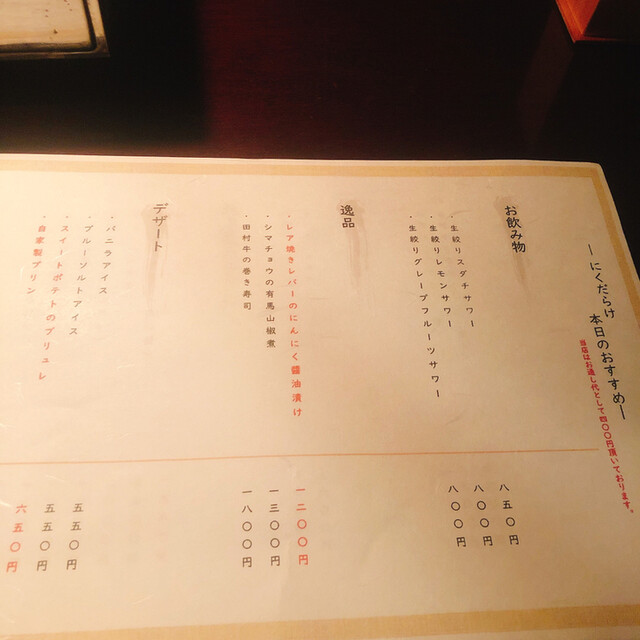 ―にくだらけ 本日のおすすめ―
当店はお通し代として四〇〇円頂いております。
お飲み物
・生絞りスダチサワー
八五〇円
・生絞りレモンサワー
八〇〇円
・生絞りグレープフルーツサワー
八〇〇円
逸品
・レア焼きレバーのにんにく醤油漬け
一二〇〇円
・シマチョウの有馬山椒煮
一三〇〇円
・田村牛の巻き寿司
一八〇〇円
デザート
・バニラアイス
五五〇円
・ブルーソルトアイス
五五〇円
・スイートポテトのブリュレ
六五〇円
・自家製プリン